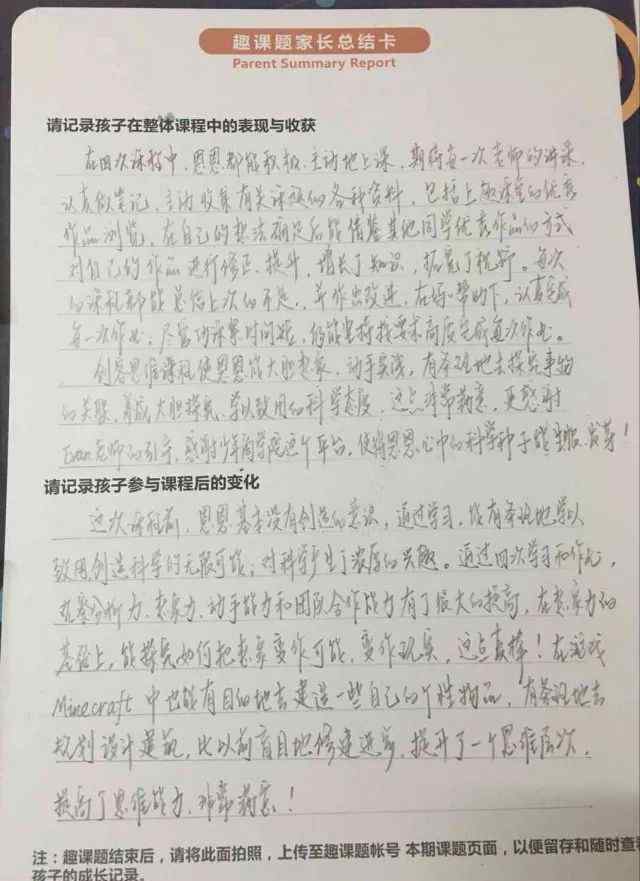 趣课题家长总结卡
Parent Summary Report
请记录孩子在整体课程中的表现与收获
在四次课程中,恩恩都能积极、主动地上课,期待每一次老师的讲课,
认真做笔记,主动收集有关课题的各种资料,包括上趣课堂的优秀
作品浏览,在自己的想法确定后能借鉴其他同学优秀作品的方式
对自己的作品进行修正、提升,增长了知识,拓宽了视野。每次
的课程都能总结上次的不足,并作出改进,在妈妈帮助下,认真完成
每一次作业,尽管功课紧时间短,仍能坚持按要求高质完成每次作业。
创客思维课程使恩恩能大胆想象,动手实践,有条理地去探究事物
的关联,养成大胆探究、学以致用的科学态度,这点非常满意,更感谢
Evan老师的引导,感谢少年商学院这个平台,使得恩恩心中的科学种子能生根、发芽!
请记录孩子参与课程后的变化
这次课程前,恩恩基本没有创造的意识,通过学习,能有条理地学以
致用创造科学的无限可能,对科学产生了浓厚的兴趣。通过四次学习和作业,
观察分析力、想象力、动手能力和团队合作能力有了很大的提高,在想象力的
基础上,能探究如何把想象变作可能,变作现实,这点真棒!在游戏
Minecraft中也能有目的地去建造一些自己的个性物品,有条理地去
规划设计建筑,比以前盲目地修建进步,提升了一个思维层次,
提高了思维能力,非常满意!
注:趣课题结束后,请将此面拍照,上传至趣课题帐号 本期课题页面,以便留存和随时查看
孩子的成长记录。